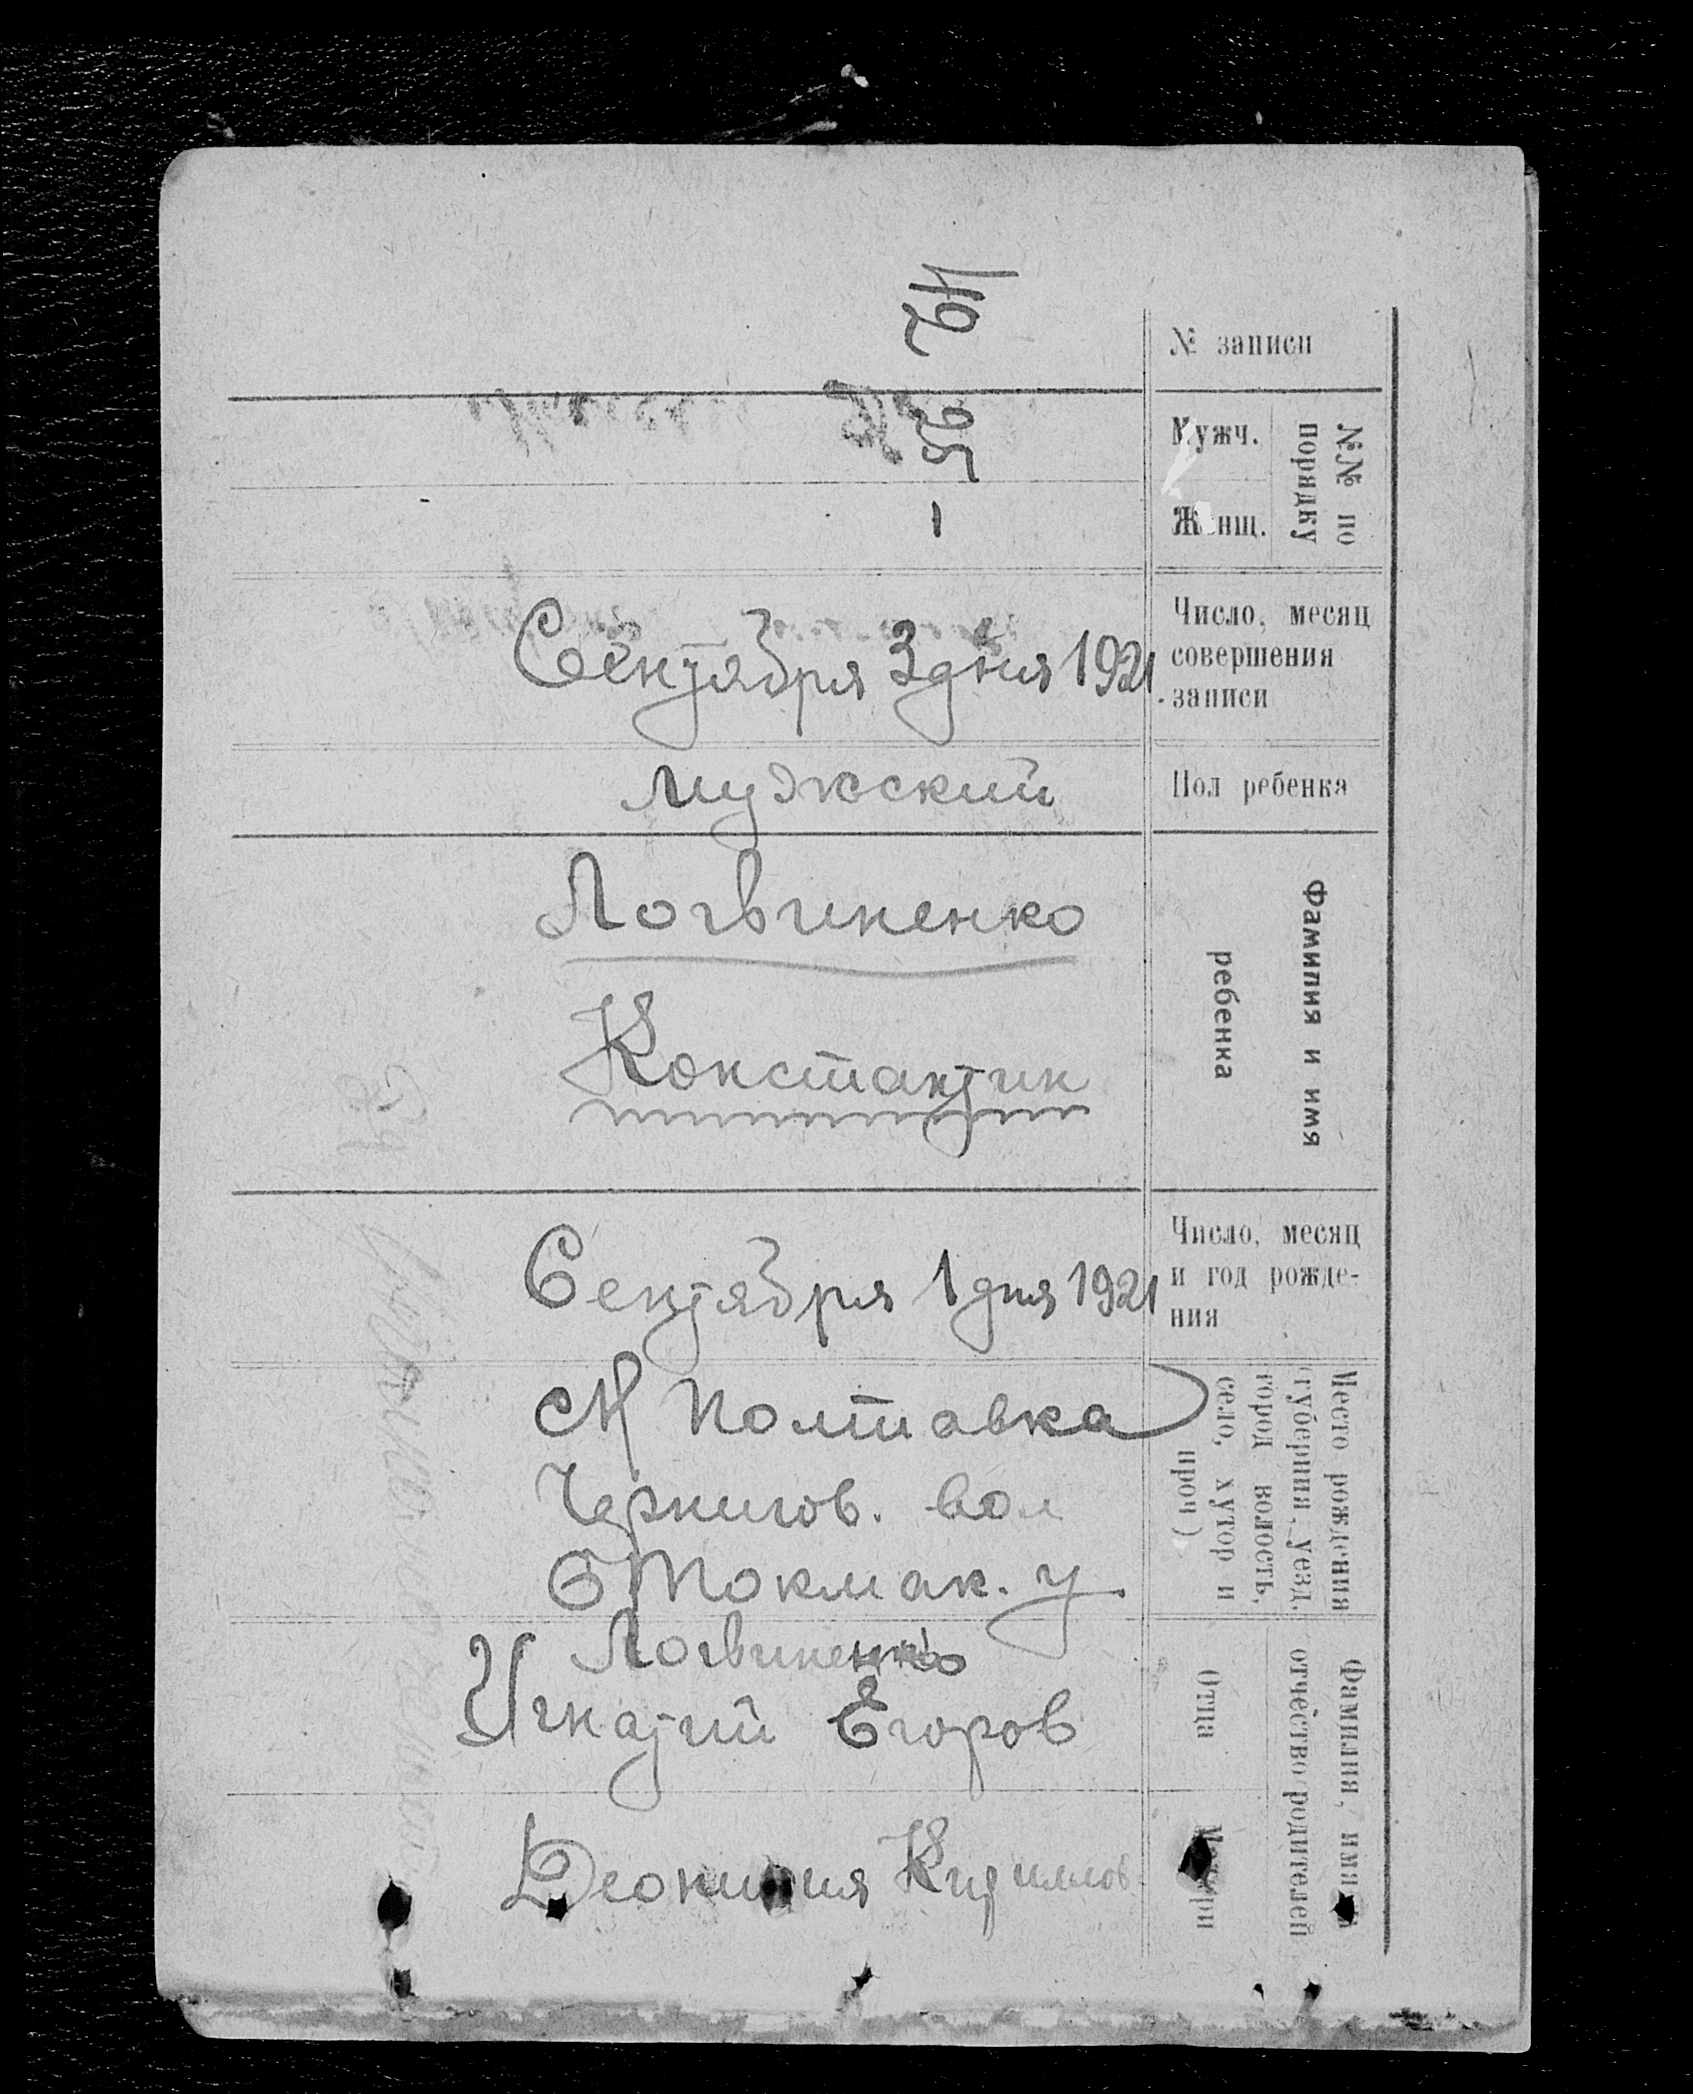 № записи
42
№№ по порядку
Мужч.
25
Женщ.
-
Число, месяц
совершения
записи
Сентября 3 дня 1921
Пол ребенка
мужский
Фамилия и имя
ребенка
Логвиненко
Константин
Число, месяц
и год рожде-
ния
Сентября 1 дня 1921
Место рождения
(губерния, уезд,
город волость,
село, хутор и
проч)
М Полтавка
Чернигов. вол
Б Токмак. у
Фамилия, имя
отчество родителей
Отца
Логвиненко
Игнатий Егоров
Матери
Кириллов